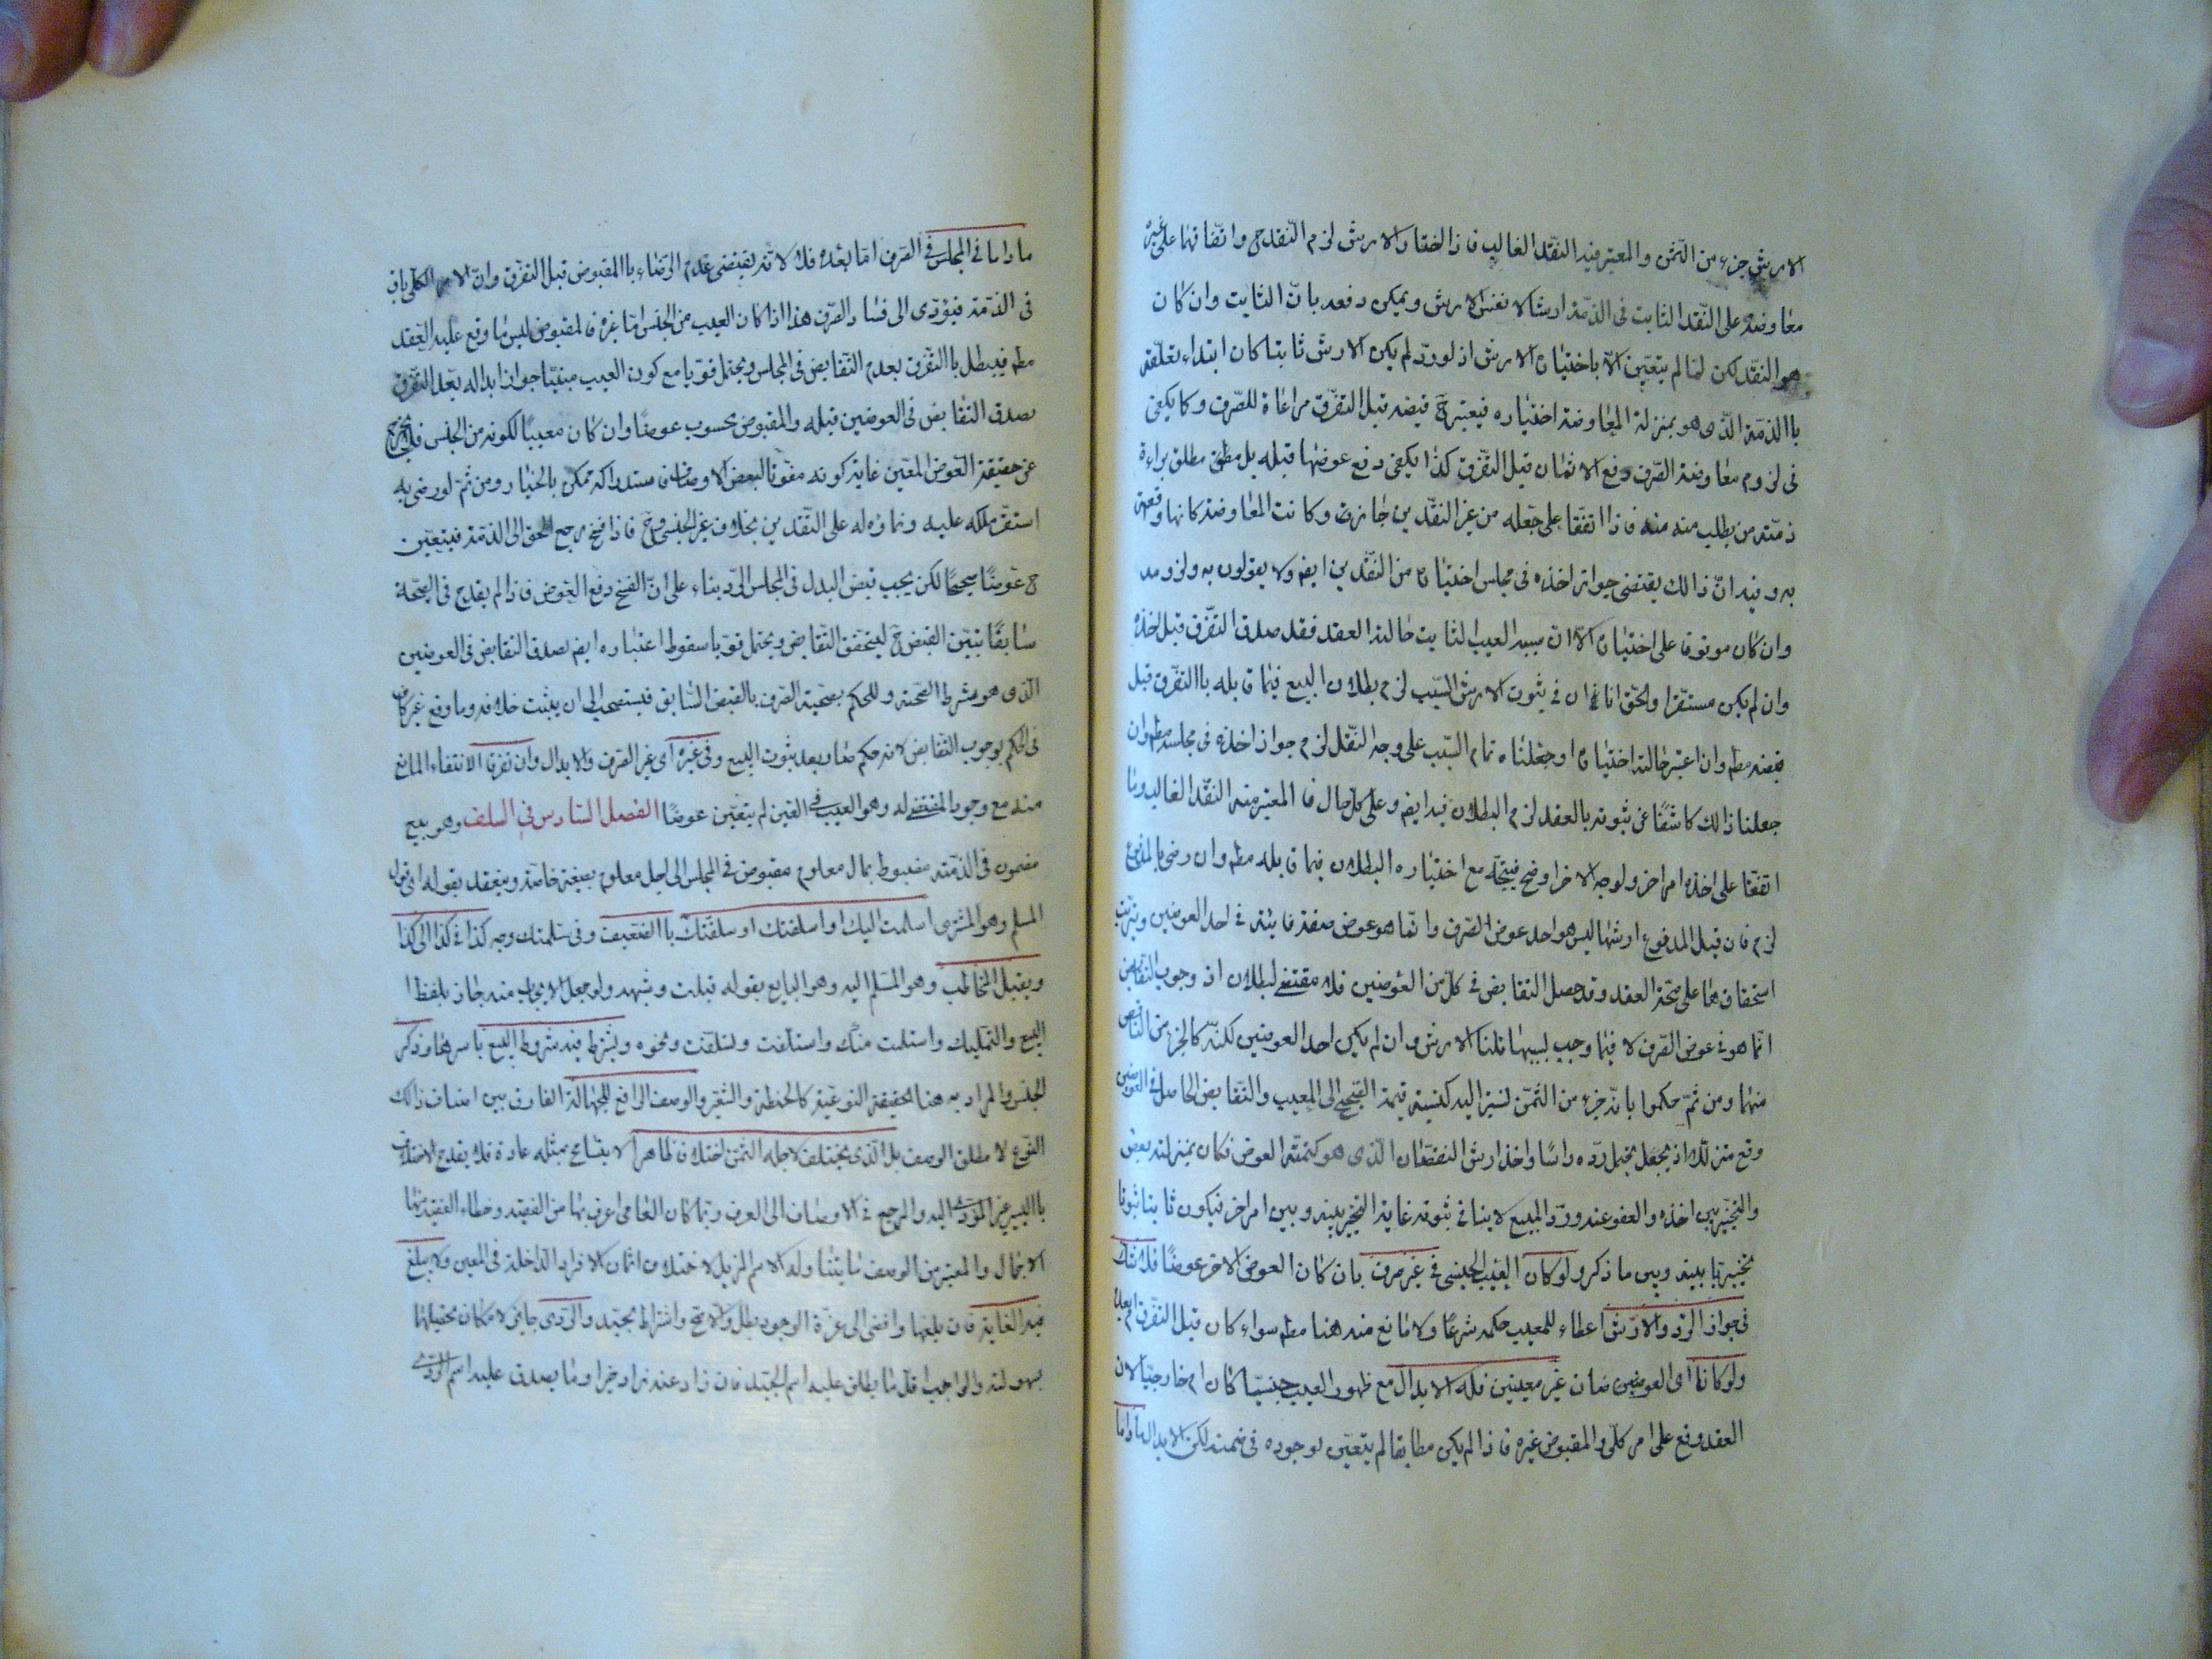 الارش جزء من الثمن والمعتبر فيه النقد الغالب فاذا اختار الارش لزم النقد ح واتفاقهما على غيره
معاوضة على النقد الثابت في الذمة ارشا لا نفس الارش ويمكن دفعه بان الثابت وان كان
هو النقد لكن لما لم يتعين الا باختياره الارش اذ لو رد لم يكن الارش ثابتا كان ابتداء تعلقه
باالذمة الذى هو بمنزلة المعاوضة اختياره فيعتبر ح قبضه قبل التفرق مراعاة للصرف وكما يكفى
فى لزوم معاوضة الصرف دفع الاثمان قبل التفرق كذا يكفى دفع عوضها قبله بل مطلق براءة
ذمته من يطلب منه منه فاذا اتفقا على جعله من غير النقدين جاز وكانت المعاوضة كانها واقعة
به وفيه ان ذالك يقتضى جواز اخذه فى مجلس اختياره من النقدين ايض ولا يقولون به ولزومه
وان كان موقوفا على اختياره الا ان سببه العيب الثابت حالة العقد فقد صدق التفرق قبل اخذه
وان لم يكن مستقرا والحق انا ان فى ثبوت الارش السبب لزم بطلان البيع فيما قابله باالتفرق قبل
قبضه مطم وان اعتبر حالة اختياره او جعلناه تمام السبب على وجه النقل لزم جواز اخذه فى مجلسه مطم وان
جعلنا ذالك كاشفا عن ثبوته بالعقد لزم البطلان فيه ايض وعلى كل حال فا المعتبر منه النقد الغالب وما
اتفقا على اخذه امر اخر ولوجه الاخر اوضح فيتجه مع اختياره البطلان فيما قابله مطم وان رضى بالمدفوع
لزم فان قيل المدفوع ارشا ليس هو احد عوضى الصرف وانما هو عوض صفة فايتة فى احد العوضين ويترتب
استحقاقها على صحة العقد وقد حصل التقابض فى كل من العوضين فلا مقتضى لبطلان اذ وجوب التقابض
انما هو فى عوضى الصرف لا فيما وجب بسببهما قلنا الارش وان لم يكن احد العوضين لكنه كالجزء من الناقص
منهما ومن ثم حكموا بانه جزء من الثمن نسبة اليه كنسبة قيمة الصحيح الى المعيب والتقابض الحاصل فى العوضين
وقع متزلزلا اذ يجعل يحتمل رده راسا واخذ ارش النقصان الذى هو كتتمة العوض فكان بمنزلة بعض
والتخيير بين اخذه والعفو عنه ورد المبيع لا ينافى ثبوته غاية التخيير بينه وبين امر اخر فيكون ثابتا ثبوتا
تخييريا بينه وبين ما ذكر ولو كان العيب الجنسى فى غير صرف بان كان العوض الاخر عوضا فلا شك
فى جواز الرد والارش اعطاء للمعيب حكمه شرعا ولا مانع منه هنا مطم سواء كان قبل التفرق ام بعده
ولو كانا اى العوضين غير معينين فله الابدال مع ظهور العيب جنسيا كان ام خارجيا لان
العقد وقع على امر كلى والمقبوض غيره فاذا لم يكن مطابقا لم يتعين لوجوده فى ضمنه لكن الابدال ماداما
ماداما فى المجلس فى الصرف اما بعده فلا لانه يقتضى عدم الرضاء باالمقبوض قبل التفرق وان الامر الكلى باق
فى الذمة فيؤدى الى فساد الصرف هذا اذا كان العيب من الجنس اما غيره فالمقبوض ليس ما وقع عليه العقد
مطم فيبطل باالتفرق بعدم التقابض فى المجلس ويحتمل قويا مع كون العيب جنسيا جواز ابداله بعد التفرق
لصدق التقابض فى العوضين قبله والمقبوض محسوب عوضا وان كان معيبا لكونه من الجنس فلا يخرج
عن حقيقة العوض المعين غاية كونه مفوتا لبعض الاوصاف فاستدراكه ممكن بالخيار ومن ثم لو رضى به
استقر ملكه عليه ونماؤه له على النقدين بخلاف غير الجنسى وح فاذا فسخ رجع الحق الى الذمة فيتعين
ح عوضا صحيحا لكن يجب قبض البدل فى المجلس الرد بناء على ان الفسخ دفع العوض فاذا لم يقدح فى الصحة
سابقا يتبين القبض ح ليتحقق التقابض ويحتمل قويا سقوط اعتباره ايض لصدق التقابض فى العوضين
الذى هو شرط الصحة وللحكم بصحة الصرف بالقبض السابق فيستصحب الى ان يثبت خلافه وما وقع غير كاف
فى الحكم بوجوب التقابض لانه حكم طار بعد ثبوت البيع وفى غيره اى غير الصرف والابدال وان تفرقا لانتفاء المانع
منه مع وجود المقتضى له وهو العيب فى العين لم يتعين عوضا الفصل السادس فى السلف وهو بيع
مضمون فى الذمة مضبوط بمال معلوم مقبوض فى المجلس الى اجل معلوم بصيغة خاصة وينعقد بقوله اى قول
المسلم وهو المشترى اسلمت اليك او اسلفتك او سلفتك باالتضعيف وفى سلمتك وجه كذا فى كذا الى كذا
ويقبل المخاطب وهو المسلم اليه وهو البايع بقوله قبلت وشبهه ولو جعل الايجاب منه جاز بلفظ ا
البيع والتمليك واستلمت منك واستلفت وتسلفت ونحوه ويشترط فيه شروط البيع باسرها وذكر
الجنس والمراد به هنا الحقيقة النوعية كالحنطة والشعير والوصف الرافع للجهالة الفارق بين اصناف ذالك
النوع لا مطلق الوصف بل الذى يختلف لاجله الثمن اختلافا ظاهرا لا يتسامح بمثله عادة فلا يقدح الاختلاف
باليسير غير المؤدى اليه والمرجع فى الاوصاف الى العرف وربما كان العامى اعرف بها من الفقيه وحظاء الفقيه منها
الاجمال والمعتبر من الوصف ما يتناوله الاسم المزيل لاختلاف اثمان الافراد الداخلة فى المعين ولا يبلغ
فيه الغاية فان بلغها وافضى الى عزة الوجود بطل والا صح واشتراط الجيد والردى جايز لامكان تحصيلهما
بسهولة والواجب اقل ما يطلق عليه اسم الجيد فان زاد عنه زاد خيرا وما يصدق عليه اسم الردى